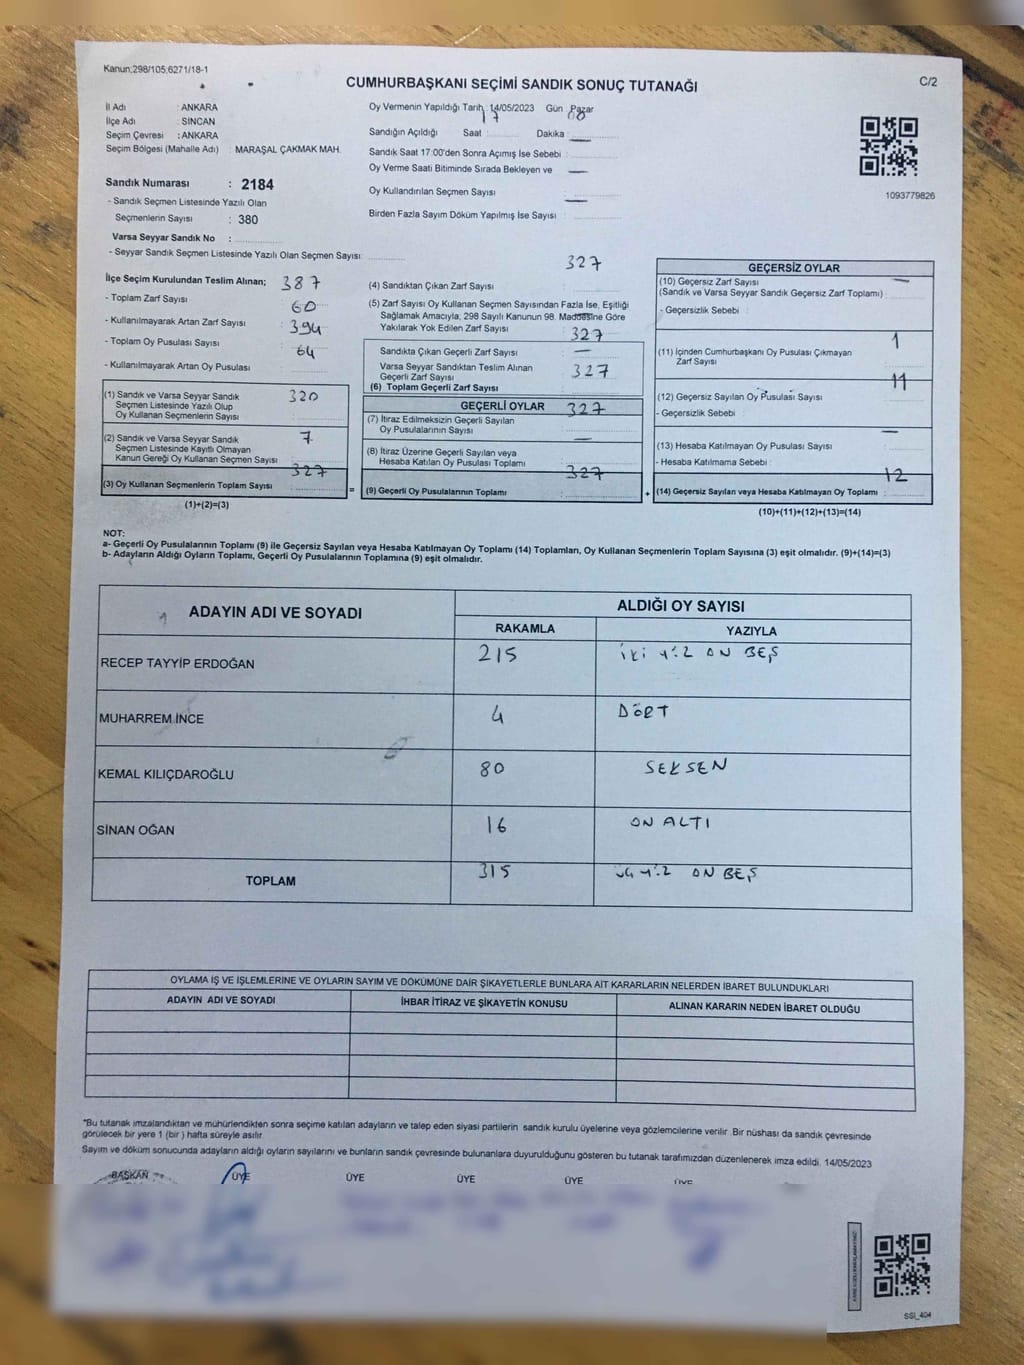 Kanun;298/105;6271/18-1
CUMHURBAŞKANI SEÇİMİ SANDIK SONUÇ TUTANAĞI
C/2
İl Adı : ANKARA
İlçe Adı : SİNCAN
Seçim Çevresi : ANKARA
Seçim Bölgesi (Mahalle Adı) : MARAŞAL ÇAKMAK MAH.
Sandık Numarası : 2184
- Sandık Seçmen Listesinde Yazılı Olan
Seçmenlerin Sayısı : 380
Varsa Seyyar Sandık No :
- Seyyar Sandık Seçmen Listesinde Yazılı Olan Seçmen Sayısı
Oy Vermenin Yapıldığı Tarih 14/05/2023 Gün Pazar
Sandığın Açıldığı Saat 17 Dakika 00
Sandık Saat 17:00'den Sonra Açımış İse Sebebi : —
Oy Verme Saati Bitiminde Sırada Bekleyen ve
Oy Kullandırılan Seçmen Sayısı : —
Birden Fazla Sayım Döküm Yapılmış İse Sayısı : —
1093779826
İlçe Seçim Kurulundan Teslim Alınan;
- Toplam Zarf Sayısı 387
- Kullanılmayarak Artan Zarf Sayısı 60
- Toplam Oy Pusulası Sayısı 394
- Kullanılmayarak Artan Oy Pusulası 64
(1) Sandık ve Varsa Seyyar Sandık
Seçmen Listesinde Yazılı Olup
Oy Kullanan Seçmenlerin Sayısı 320
(2) Sandık ve Varsa Seyyar Sandık
Seçmen Listesinde Kayıtlı Olmayan
Kanun Gereği Oy Kullanan Seçmen Sayısı 7
(3) Oy Kullanan Seçmenlerin Toplam Sayısı 327
(1)+(2)=(3)
=
(4) Sandıktan Çıkan Zarf Sayısı 327
(5) Zarf Sayısı Oy Kullanan Seçmen Sayısından Fazla İse, Eşitliği
Sağlamak Amacıyla; 298 Sayılı Kanunun 98. Maddesine Göre
Yakılarak Yok Edilen Zarf Sayısı —
Sandıkta Çıkan Geçerli Zarf Sayısı 327
Varsa Seyyar Sandıktan Teslim Alınan
Geçerli Zarf Sayısı —
(6) Toplam Geçerli Zarf Sayısı 327
GEÇERLİ OYLAR
(7) İtiraz Edilmeksizin Geçerli Sayılan
Oy Pusulalarının Sayısı 327
(8) İtiraz Üzerine Geçerli Sayılan veya
Hesaba Katılan Oy Pusulası Toplamı —
(9) Geçerli Oy Pusulalarının Toplamı 327
+
GEÇERSİZ OYLAR
(10) Geçersiz Zarf Sayısı
(Sandık ve Varsa Seyyar Sandık Geçersiz Zarf Toplamı) : —
- Geçersizlik Sebebi :
(11) İçinden Cumhurbaşkanı Oy Pusulası Çıkmayan
Zarf Sayısı 1
(12) Geçersiz Sayılan Oy Pusulası Sayısı 11
- Geçersizlik Sebebi :
(13) Hesaba Katılmayan Oy Pusulası Sayısı : —
- Hesaba Katılmama Sebebi :
(14) Geçersiz Sayılan veya Hesaba Katılmayan Oy Toplamı : 12
(10)+(11)+(12)+(13)=(14)
NOT:
a- Geçerli Oy Pusulalarının Toplamı (9) ile Geçersiz Sayılan veya Hesaba Katılmayan Oy Toplamı (14) Toplamları, Oy Kullanan Seçmenlerin Toplam Sayısına (3) eşit olmalıdır. (9)+(14)=(3)
b- Adayların Aldığı Oyların Toplamı, Geçerli Oy Pusulalarının Toplamına (9) eşit olmalıdır.
ADAYIN ADI VE SOYADI ALDIĞI OY SAYISI
RAKAMLA YAZIYLA
RECEP TAYYİP ERDOĞAN 215 İKİ YÜZ ON BEŞ
MUHARREM İNCE 4 DÖRT
KEMAL KILIÇDAROĞLU 80 SEKSEN
SİNAN OĞAN 16 ON ALTI
TOPLAM 315 ÜÇ YÜZ ON BEŞ
OYLAMA İŞ VE İŞLEMLERİNE VE OYLARIN SAYIM VE DÖKÜMÜNE DAİR ŞİKAYETLERLE BUNLARA AİT KARARLARIN NELERDEN İBARET BULUNDUKLARI
ADAYIN ADI VE SOYADI İHBAR İTİRAZ VE ŞİKAYETİN KONUSU ALINAN KARARIN NEDEN İBARET OLDUĞU
*Bu tutanak imzalandıktan ve mühürlendikten sonra seçime katılan adayların ve talep eden siyasi partilerin sandık kurulu üyelerine veya gözlemcilerine verilir .Bir nüshası da sandık çevresinde
görülecek bir yere 1 (bir ) hafta süreyle asılır.
Sayım ve döküm sonucunda adayların aldığı oyların sayılarını ve bunların sandık çevresinde bulunanlara duyurulduğunu gösteren bu tutanak tarafımızdan düzenlenerek imza edildi. 14/05/2023
BAŞKAN ÜYE ÜYE ÜYE ÜYE ÜYE
SSİ_404